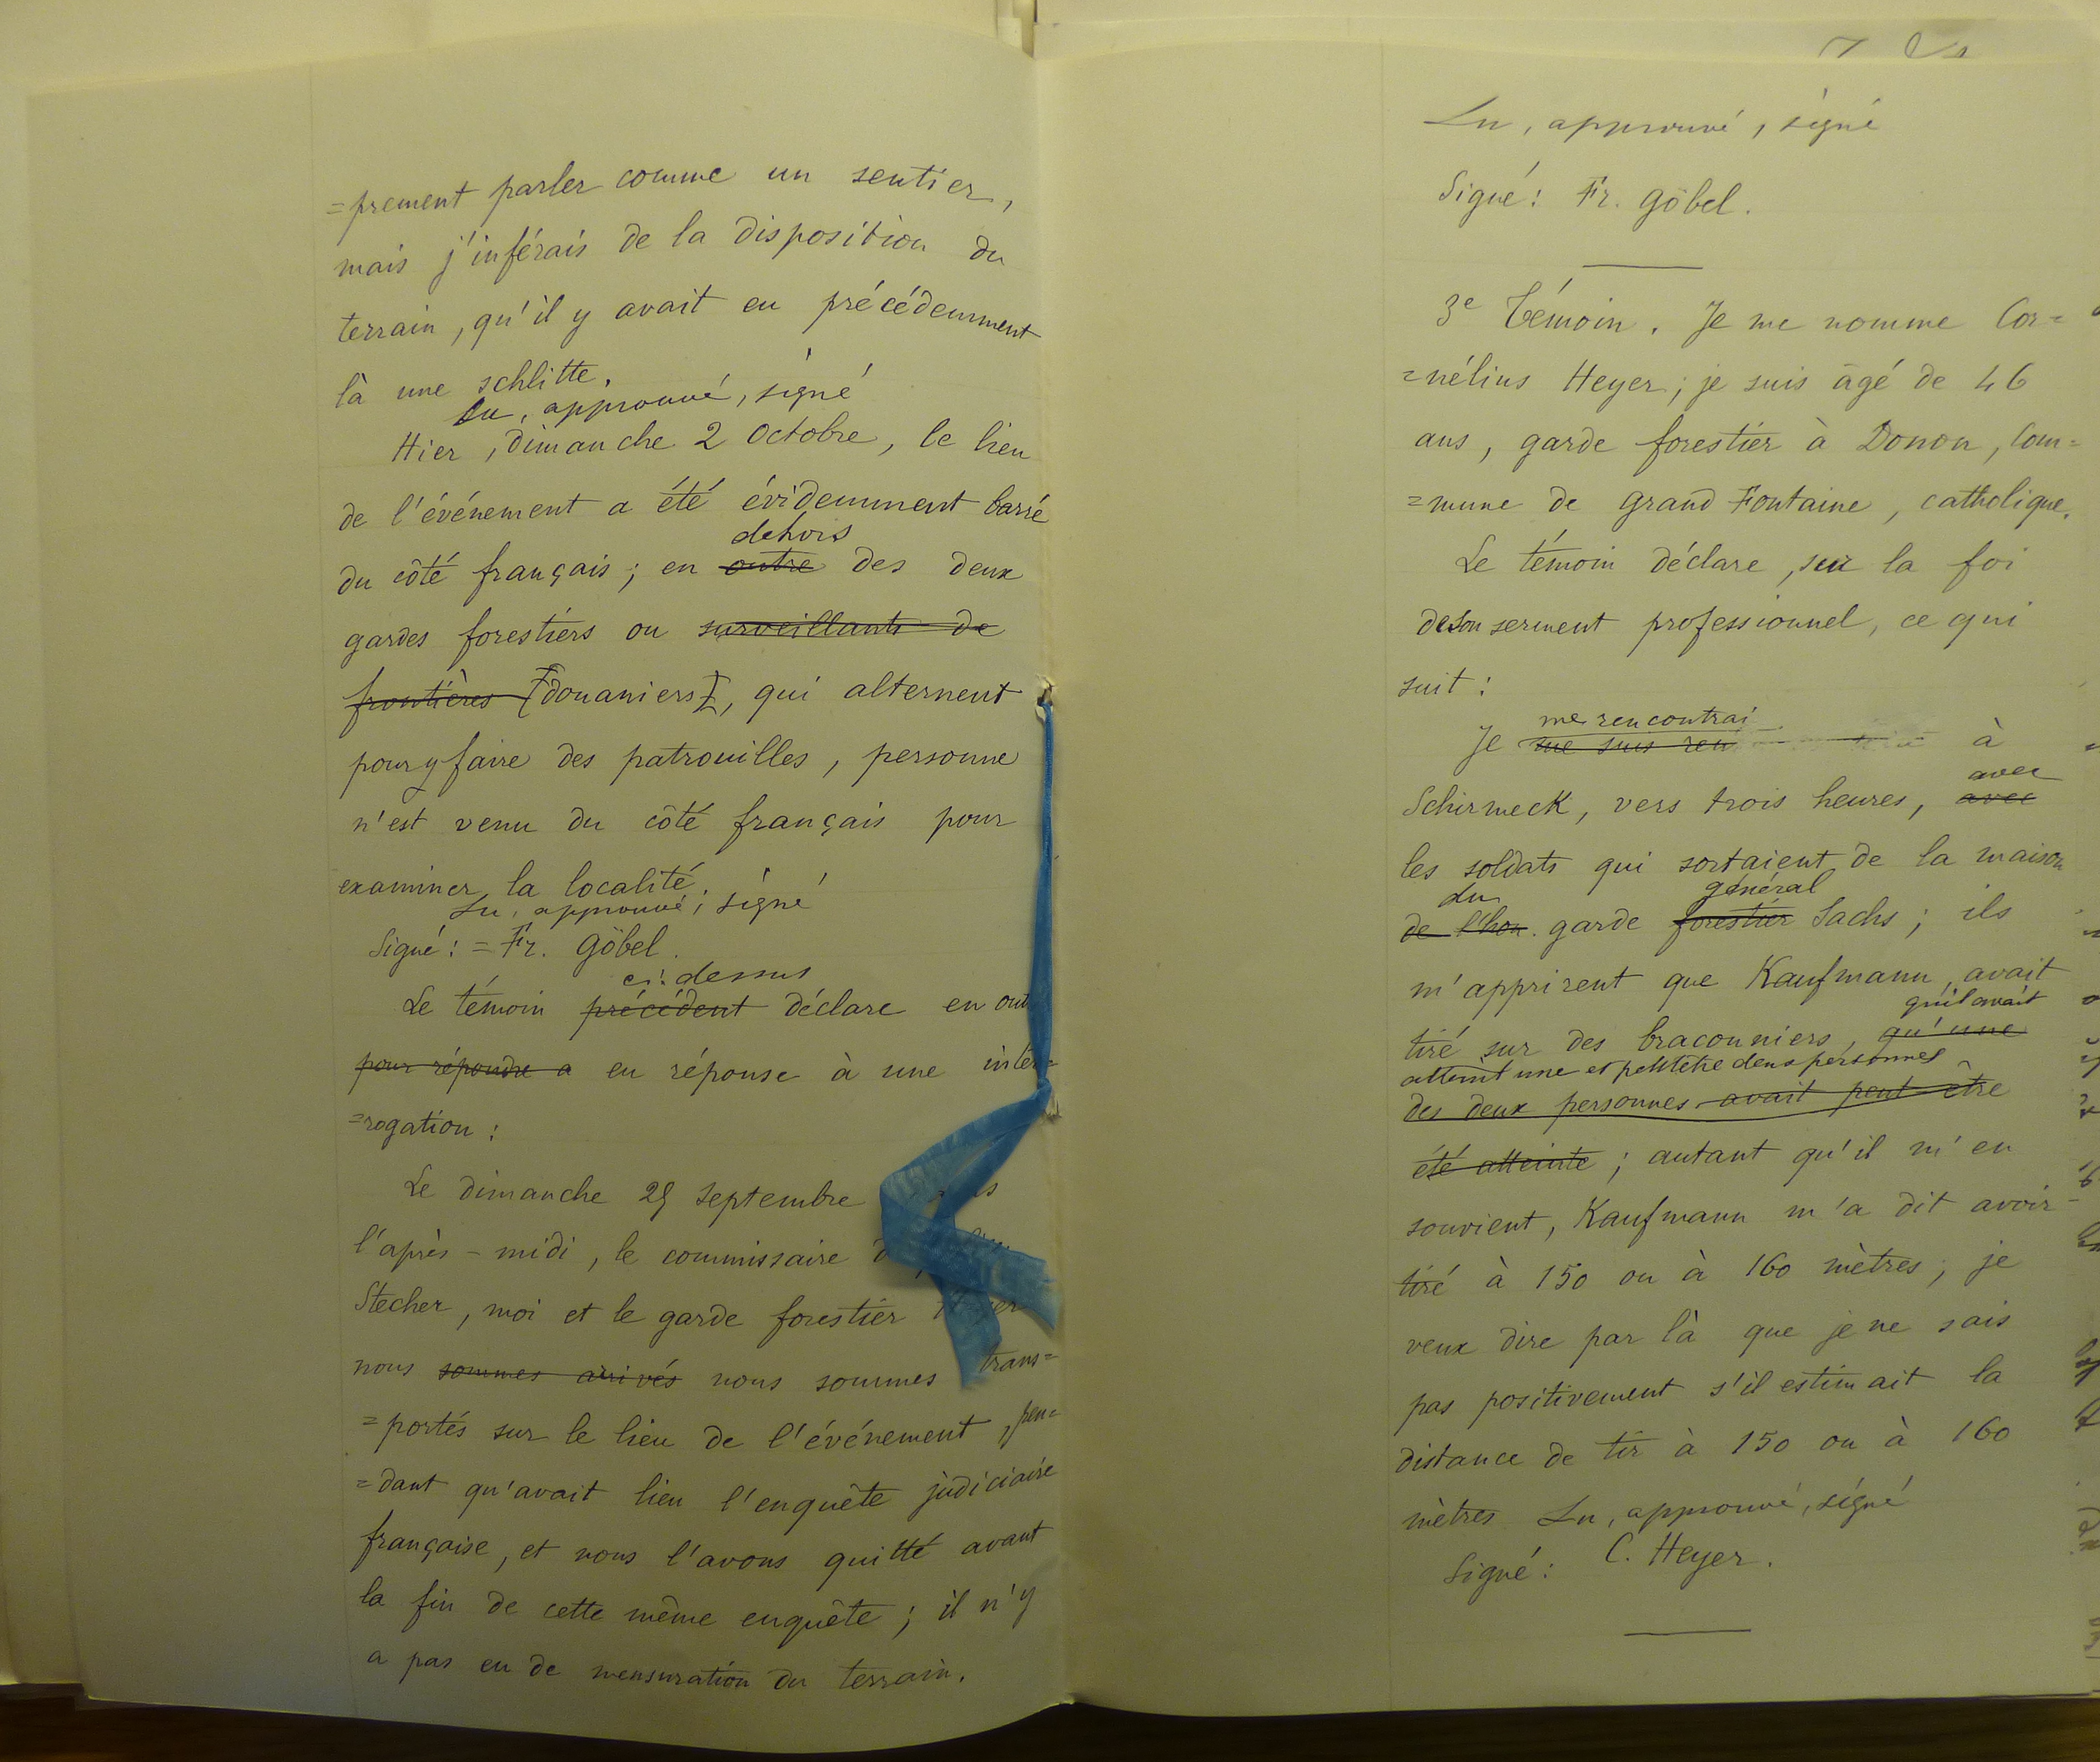 =prement parler comme un sentier,
mais j'inférais de la disposition du
terrain, qu'il y avait eu précédemment
là une schlitte.
Lu, approuvé, signé
Hier, dimanche 2 Octobre, le lieu
de l'événement a été évidemment barré
dehors
du côté français; en outre des deux
gardes forestiers ou surveillants de
frontières [douaniers], qui alternent
pour y faire des patrouilles, personne
n'est venu du côté français pour
examiner la localité.
Lu, approuvé, signé
Signé: = Fr. Göbel.
ci-dessus
Le témoin précédent déclare en out
pour répondre a en réponse à une inter=
=rogation:
Le dimanche 25 septembre
l'après-midi, le commissaire
Stecher, moi et le garde forestier
nous sommes arrivés nous sommes trans=
=portés sur le lieu de l'événement, pen=
=dant qu'avait lieu l'enquête judiciaire
française, et nous l'avons quitté avant
la fin de cette même enquête; il n'y
a pas eu de mensuration du terrain.
Lu, approuvé, signé
Signé: Fr. Göbel.
3e Témoin. Je me nomme Cor=
=nélius Heyer; je suis âgé de 46
ans, garde forestier à Donon, Com=
=mune de Grand Fontaine, catholique.
Le témoin déclare, sur la foi
de son serment professionnel, ce qui
suit:
me rencontrai
Je me suis ren à
avec
Schirmeck, vers trois heures, avec
les soldats qui sortaient de la maison
du général
de l'hon. garde forestier Sachs; ils
m'apprirent que Kaufmann avait
qu'il avait
tiré sur des braconniers, qu'une
atteint une et peut-être deux personnes
des deux personnes avait peut-être
été atteinte; autant qu'il m'en
souvient, Kaufmann m'a dit avoir
tiré à 150 ou à 160 mètres; je
veux dire par là que je ne sais
pas positivement s'il estimait la
distance de tir à 150 ou à 160
mètres Lu, approuvé, signé
Signé: C. Heyer.